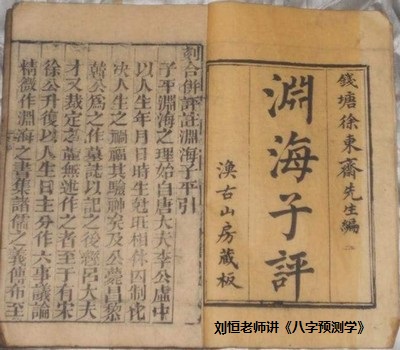 錢塘徐東齋先生編
淵海子評
渙古山房蔵板
刻合併評註淵海子平引
子平淵海之理始自唐大夫李公虛中
以人生年月日時生尅旺相休囚制化
决人生之禍福其驗神矣及公薨昌黎
韓公為之作墓誌以記之後經呂大夫
才又裁定之並無述作之者至于有宋
徐公升復以人生日主分作六事議論
精微作淵海之書集諸儒之義傳布至
刘恒老师讲《八字预测学》